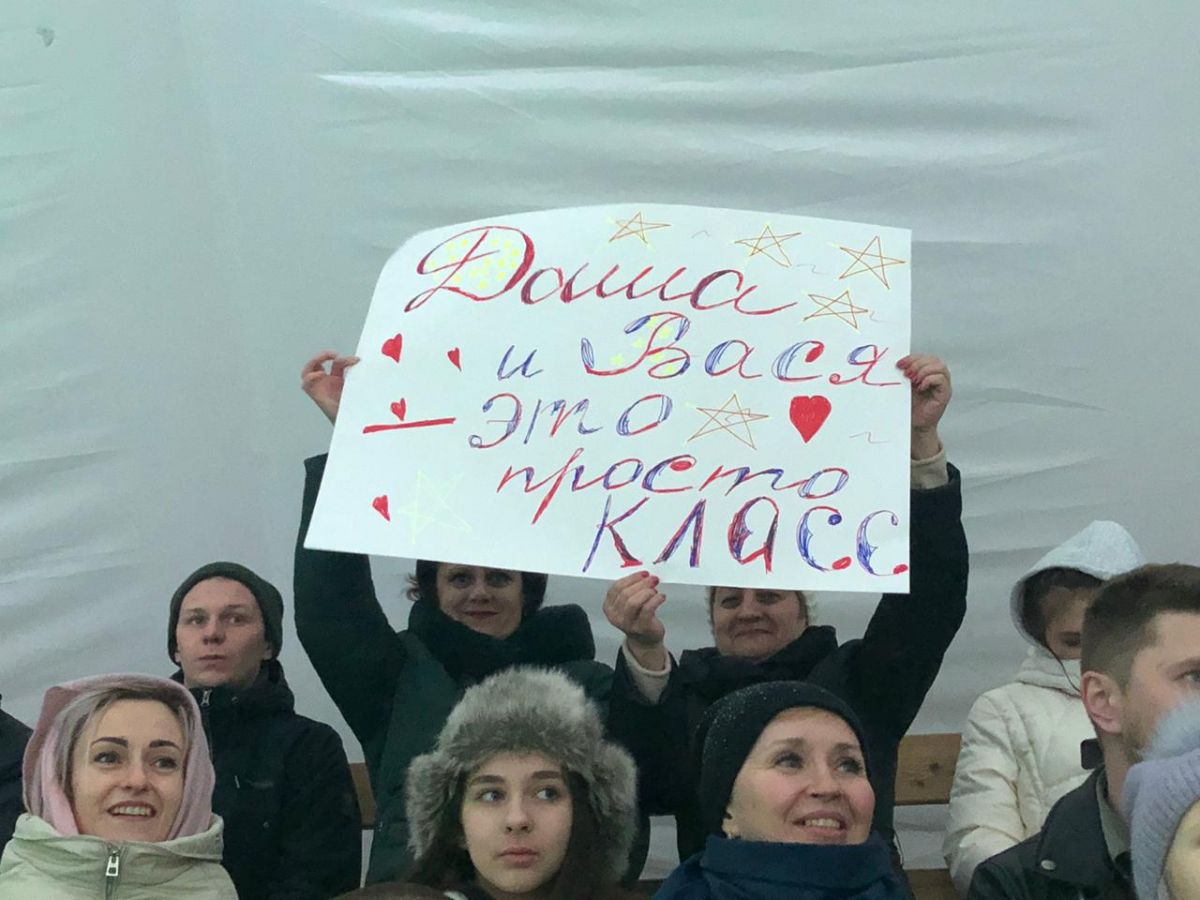 Даша
и Вася
это
просто
КЛАСС